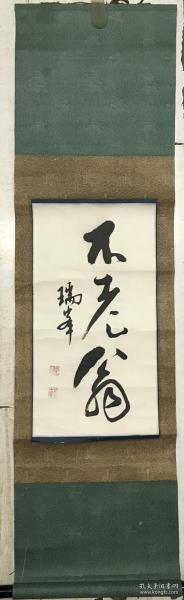 不老翁
瑞峯
孔夫子旧书网